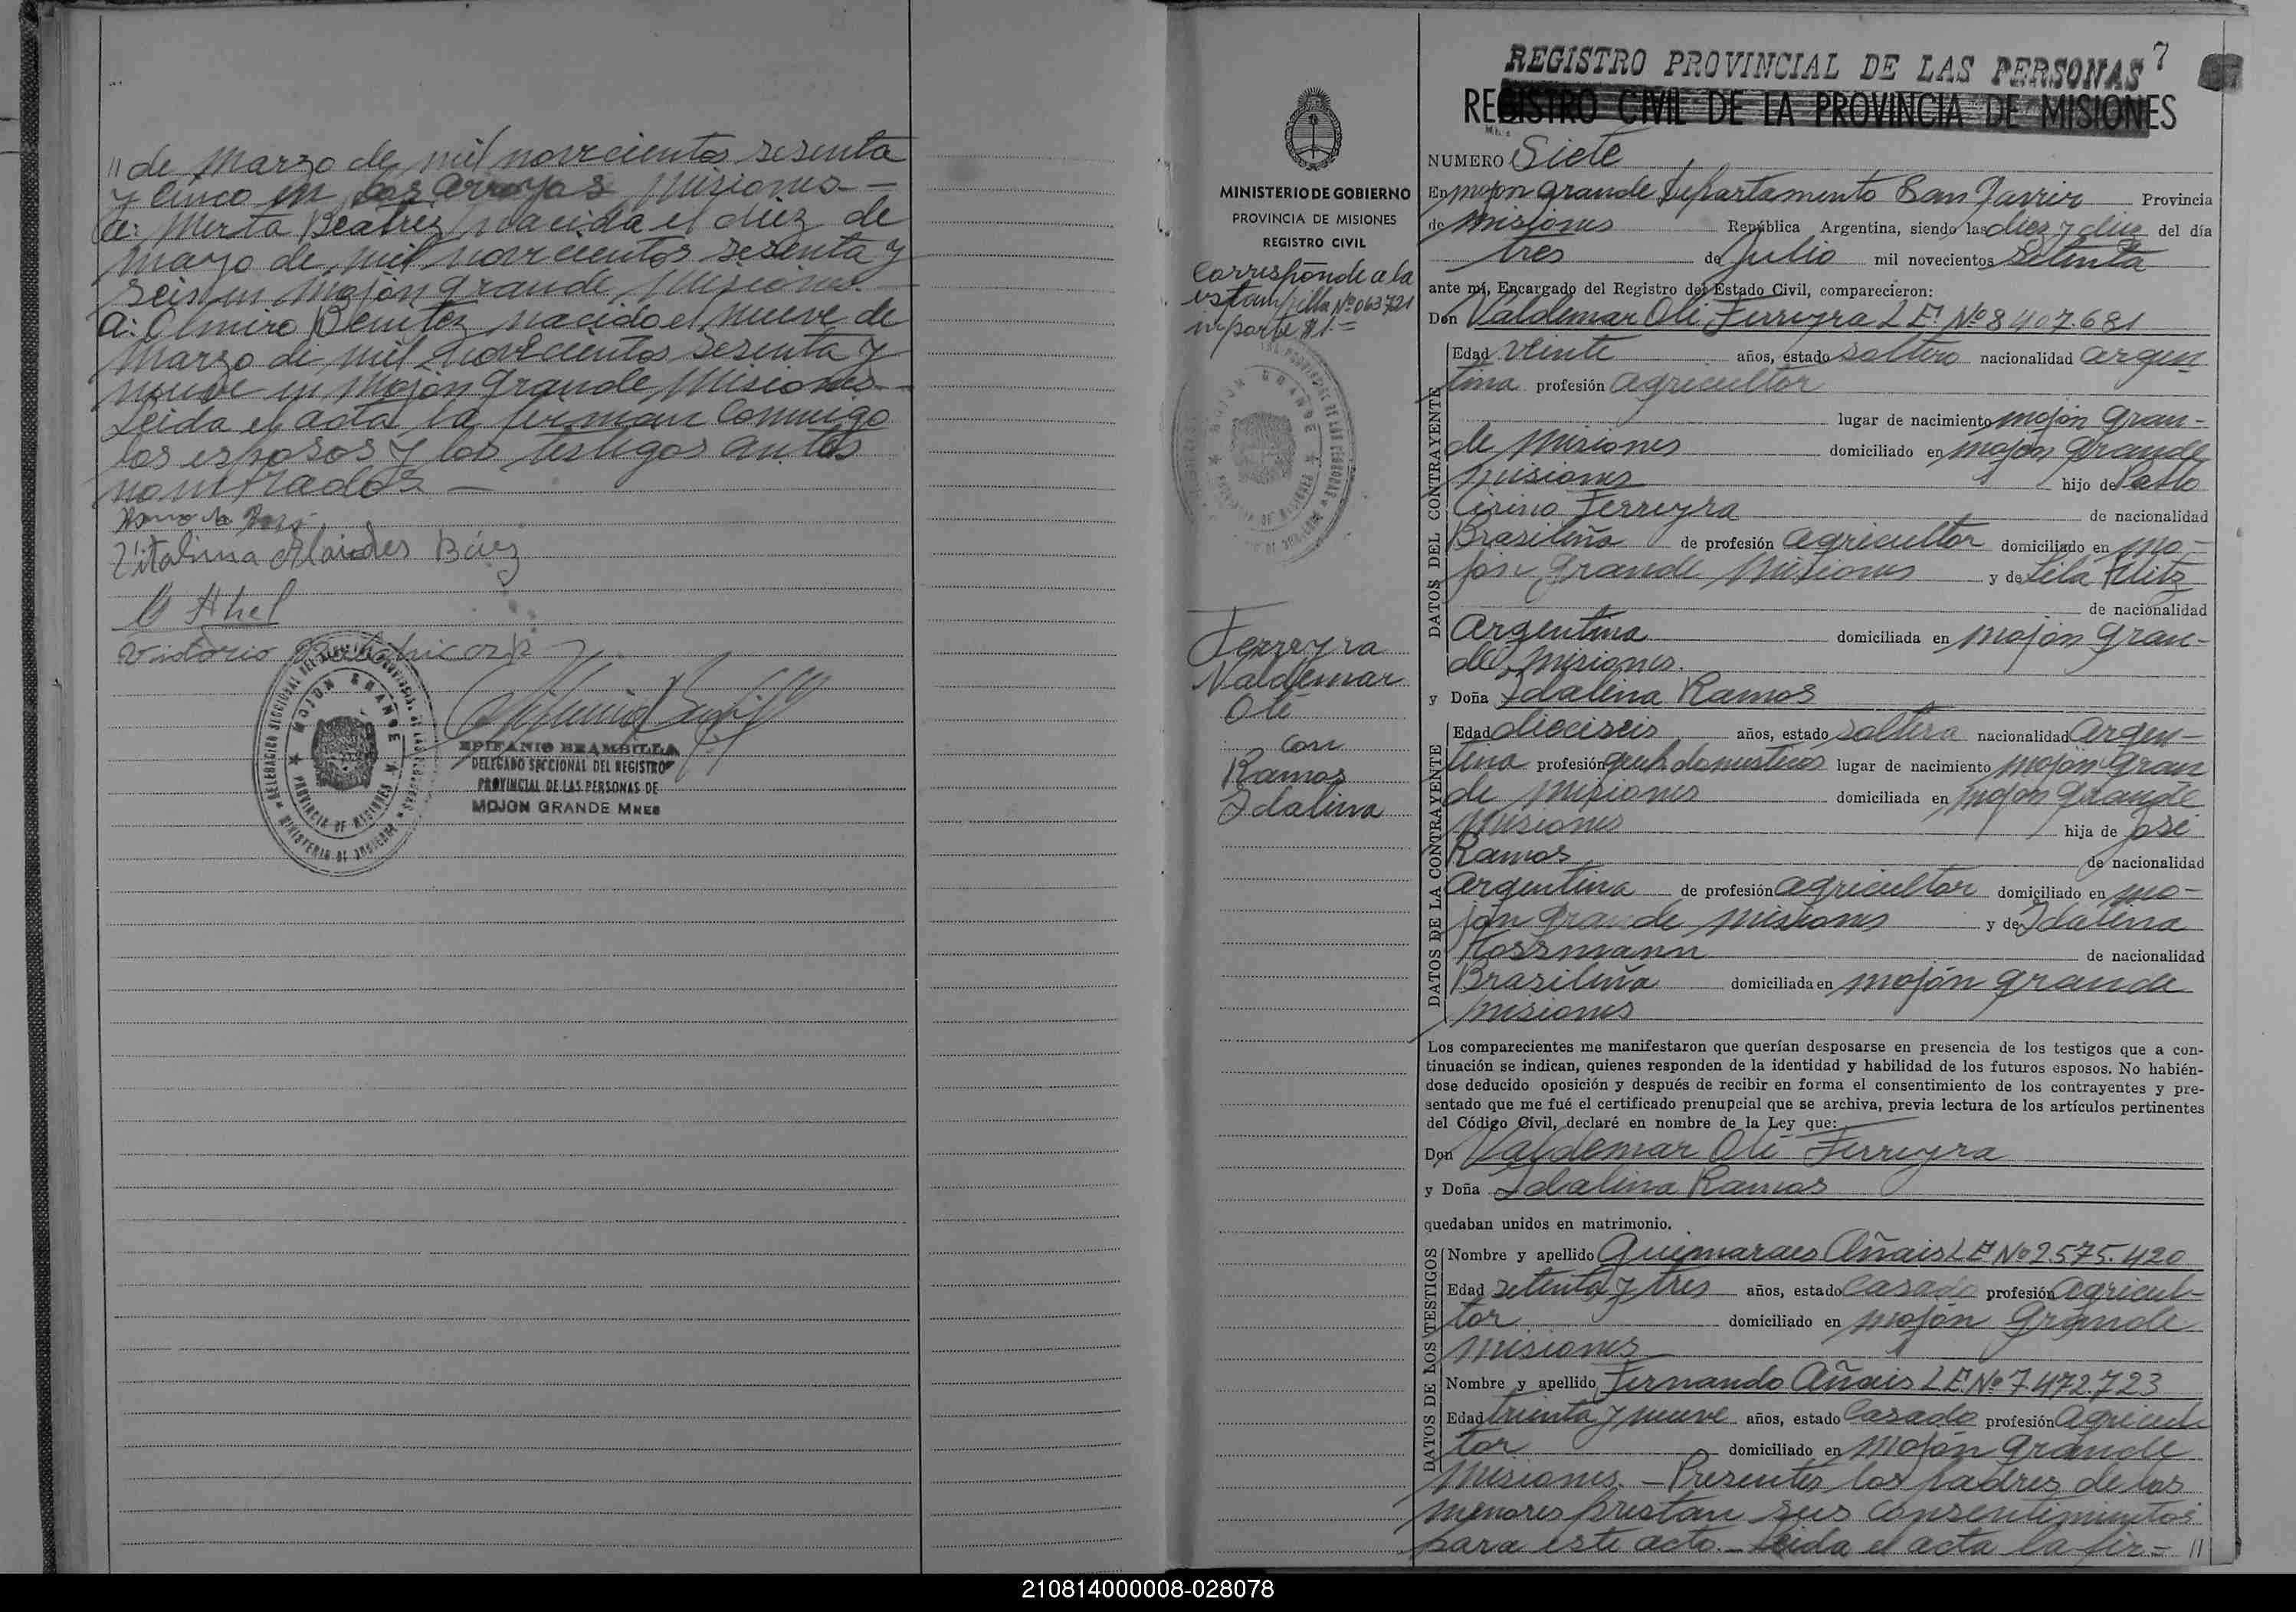 // de Marzo de mil novecientos sesenta
y cinco en Los Arroyos Misiones. —
a: Mirta Beatriz nacida el diez de
mayo de mil novecientos sesenta y
seis en Mojón grande Misiones. —
a: Almiro Benitez nacido el nueve de
Marzo de mil novecientos sesenta y
nueve en Mojón grande Misiones. —
Leida el acta la firman conmigo
los esposos y los testigos antes
nombrados —
Vitalina Báez
Victorio
DELEGACION SECCIONAL DEL REGISTRO PROVINCIAL DE LAS PERSONAS
MOJON GRANDE
PROVINCIA DE MISIONES
MINISTERIO DE GOBIERNO
EPIFANIO BRAMBILLA
DELEGADO SECCIONAL DEL REGISTRO
PROVINCIAL DE LAS PERSONAS DE
MOJON GRANDE MNES
MINISTERIO DE GOBIERNO
PROVINCIA DE MISIONES
REGISTRO CIVIL
Corresponde a la
estampilla Nº 063721
importe $1.=
MOJON GRANDE
Ferreyra
Valdemar
Oli
con
Ramos
Idalina
REGISTRO PROVINCIAL DE LAS PERSONAS 7
REGISTRO CIVIL DE LA PROVINCIA DE MISIONES
NUMERO Siete
En mojon grande Departamento San Javier Provincia
de misiones República Argentina, siendo las diez y diez del día
tres de Julio mil novecientos Setenta
ante mí, Encargado del Registro del Estado Civil, comparecieron:
Don Valdemar Oli Ferreyra L.E. Nº 8407.681
DATOS DEL CONTRAYENTE
Edad veinte años, estado soltero nacionalidad argen
tina profesión agricultor
lugar de nacimiento mojón gran-
de Misiones domiciliado en mojón grande
Misiones hijo de Pablo
Cirino Ferreyra de nacionalidad
Brasileña de profesión agricultor domiciliado en mo-
jón grande Misiones y de Lila
de nacionalidad
Argentina domiciliada en mojón gran-
de Misiones.
y Doña Idalina Ramos
DATOS DE LA CONTRAYENTE
Edad dieciseis años, estado soltera nacionalidad argen-
tina profesión queh. domésticos lugar de nacimiento mojón gran
de Misiones domiciliada en mojón grande
Misiones hija de José
Ramos de nacionalidad
argentina de profesión agricultor domiciliado en mo-
jón grande misiones y de Idalina
Hossmann de nacionalidad
Brasileña domiciliada en mojón grande
misiones
Los comparecientes me manifestaron que querían desposarse en presencia de los testigos que a con-
tinuación se indican, quienes responden de la identidad y habilidad de los futuros esposos. No habién-
dose deducido oposición y después de recibir en forma el consentimiento de los contrayentes y pre-
sentado que me fué el certificado prenupcial que se archiva, previa lectura de los artículos pertinentes
del Código Civil, declaré en nombre de la Ley que:
Don Valdemar Oli Ferreyra
y Doña Idalina Ramos
quedaban unidos en matrimonio.
DATOS DE LOS TESTIGOS
Nombre y apellido Guimaraes Añais L.E. Nº 2.575.420
Edad setenta y tres años, estado casado profesión agricul-
tor domiciliado en mojón grande
misiones
Nombre y apellido Fernando Añais L.E. Nº 7.472.723
Edad treinta y nueve años, estado casado profesión agricul
tor domiciliado en mojón grande
Misiones. — Presentes los padres de los
menores prestan sus consentimientos
para este acto. — Leida el acta la fir= //
210814000008-028078